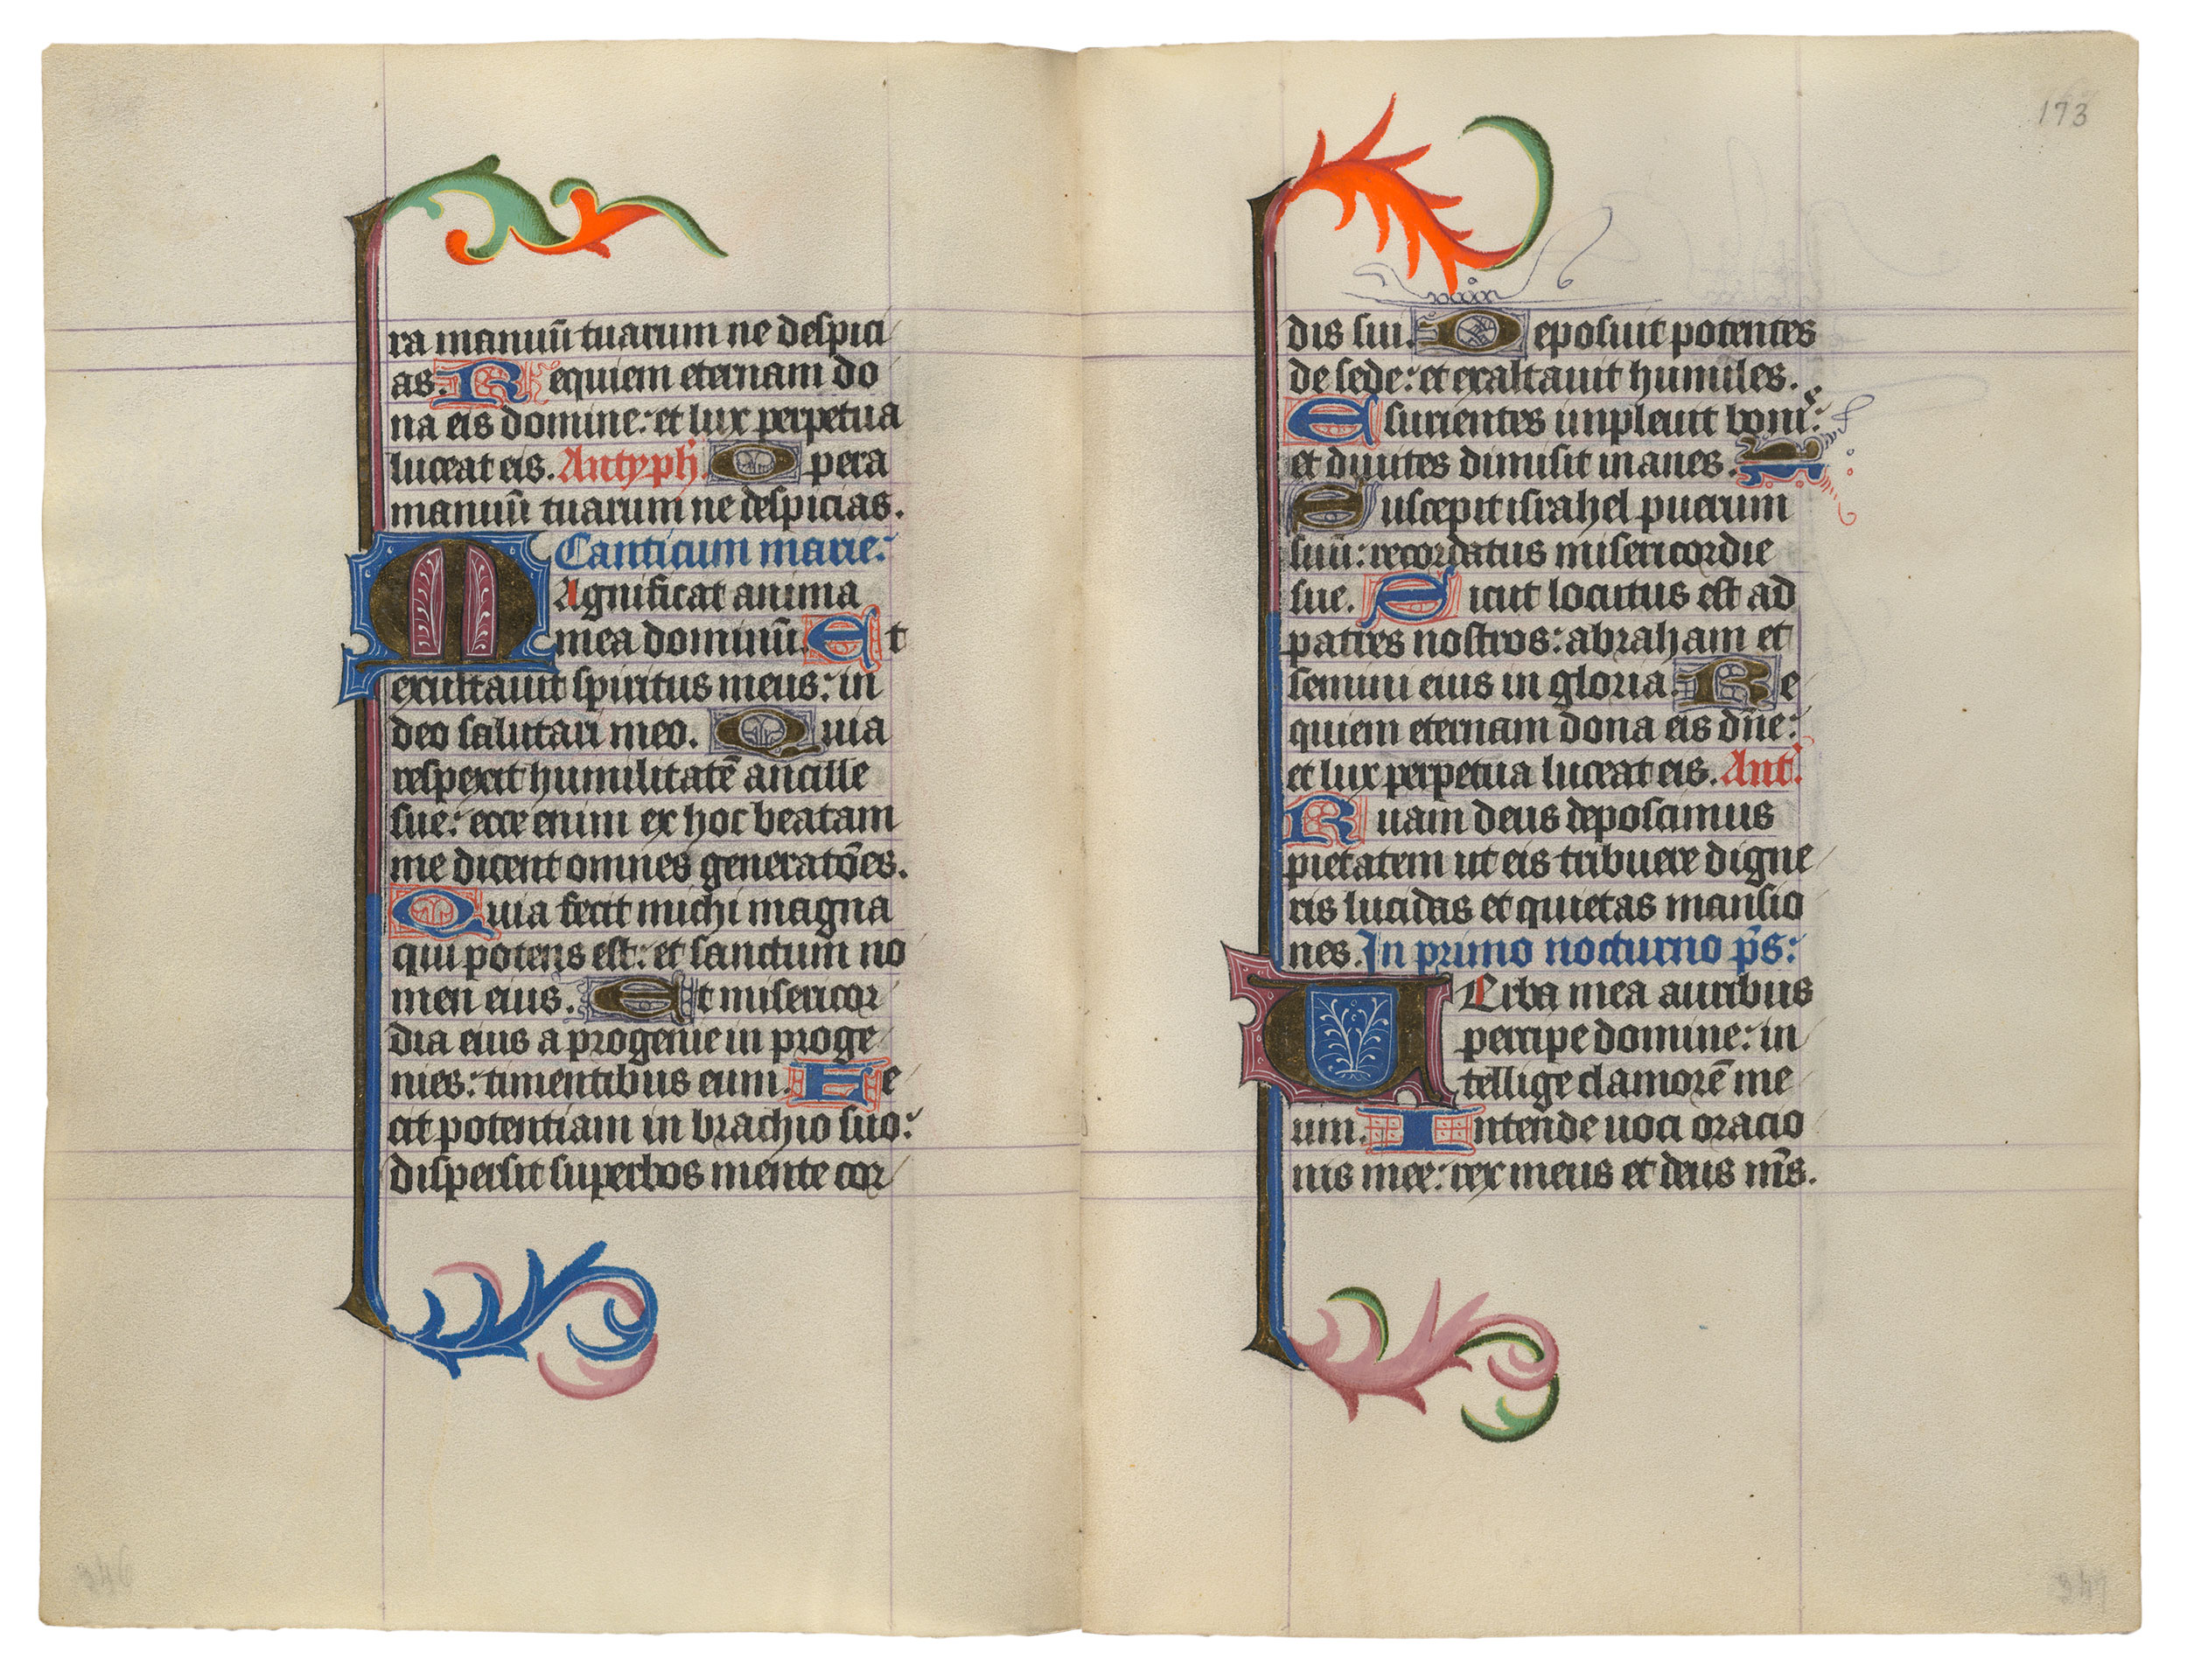 ra manuū tuarum ne despici
as. Requiem eternam do
na eis domine: et lux perpetua
luceat eis. Antyph. Opera
manuū tuarum ne despicias.
Canticum marie:
MAgnificat anima
mea dominū. Et
exultauit spiritus meus: in
deo salutari meo. Quia
respexit humilitatē ancille
sue: ecce enim ex hoc beatam
me dicent omnes generatōes.
Quia fecit michi magna
qui potens est: et sanctum no
men eius. Et misericor
dia eius a progenie in proge
nies: timentibus eum. Fe
cit potentiam in brachio suo:
dispersit superbos mente cor
173
dis sui. Deposuit potentes
de sede: et exaltauit humiles.
Esurientes impleuit bonis:
et diuites dimisit inanes.
Suscepit israhel puerum
suū: recordatus misericordie
sue. Sicut locutus est ad
patres nostros: abraham et
semini eius in gloria. Re
quiem eternam dona eis dn̄e:
et lux perpetua luceat eis. Ant.
Ruam deus deposcimus
pietatem ut eis tribuere digne
ris lucidas et quietas mansio
nes. In primo nocturno p̄s:
VErba mea auribus
percipe domine: in
tellige clamorē me
um. Intende uoci oracio
nis mee: rex meus et deus m̄s.
346
347